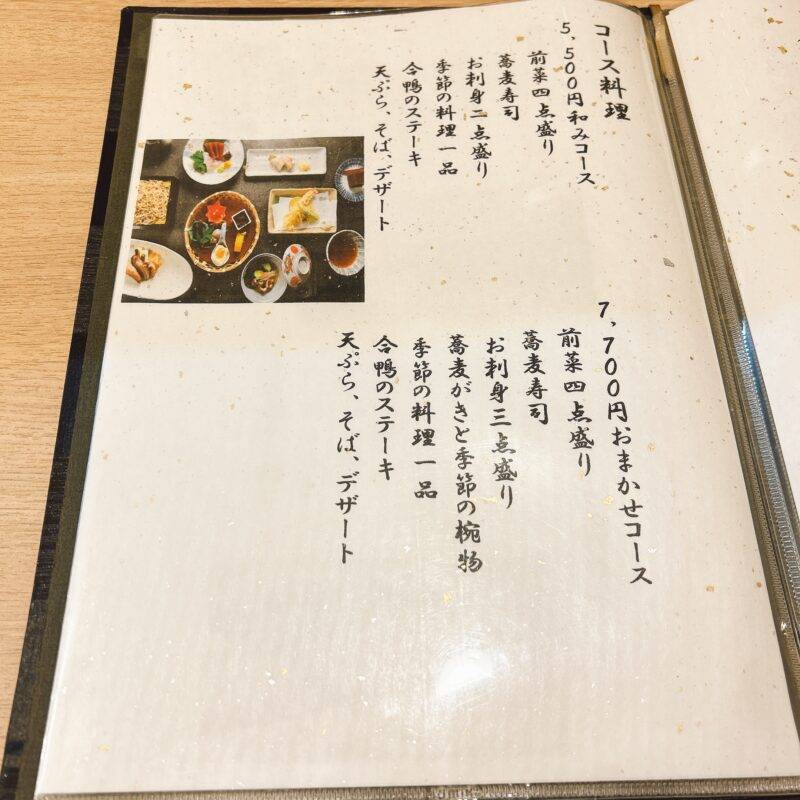 コース料理
5,500円和みコース
前菜四点盛り
蕎麦寿司
お刺身二点盛り
季節の料理一品
合鴨のステーキ
天ぷら、そば、デザート
7,700円おまかせコース
前菜四点盛り
蕎麦寿司
お刺身三点盛り
蕎麦がきと季節の椀物
季節の料理一品
合鴨のステーキ
天ぷら、そば、デザート